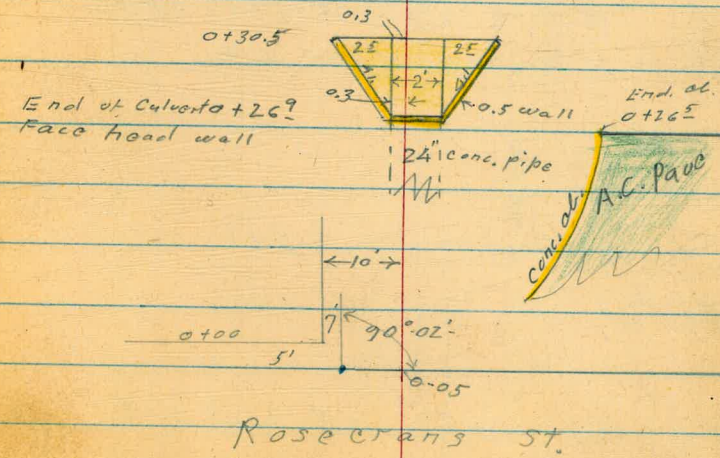 0.3
0+30.5
2⁵ 2⁵
2'
0.3
0.5 wall
End of Culvert 0+26⁹
Face head wall
End. ab.
0+26⁵
24" conc. pipe
A.C. Pave
Conc. ab.
10'
7'
90°-02'-
0+00
5'
0-05
Rosecrans St.